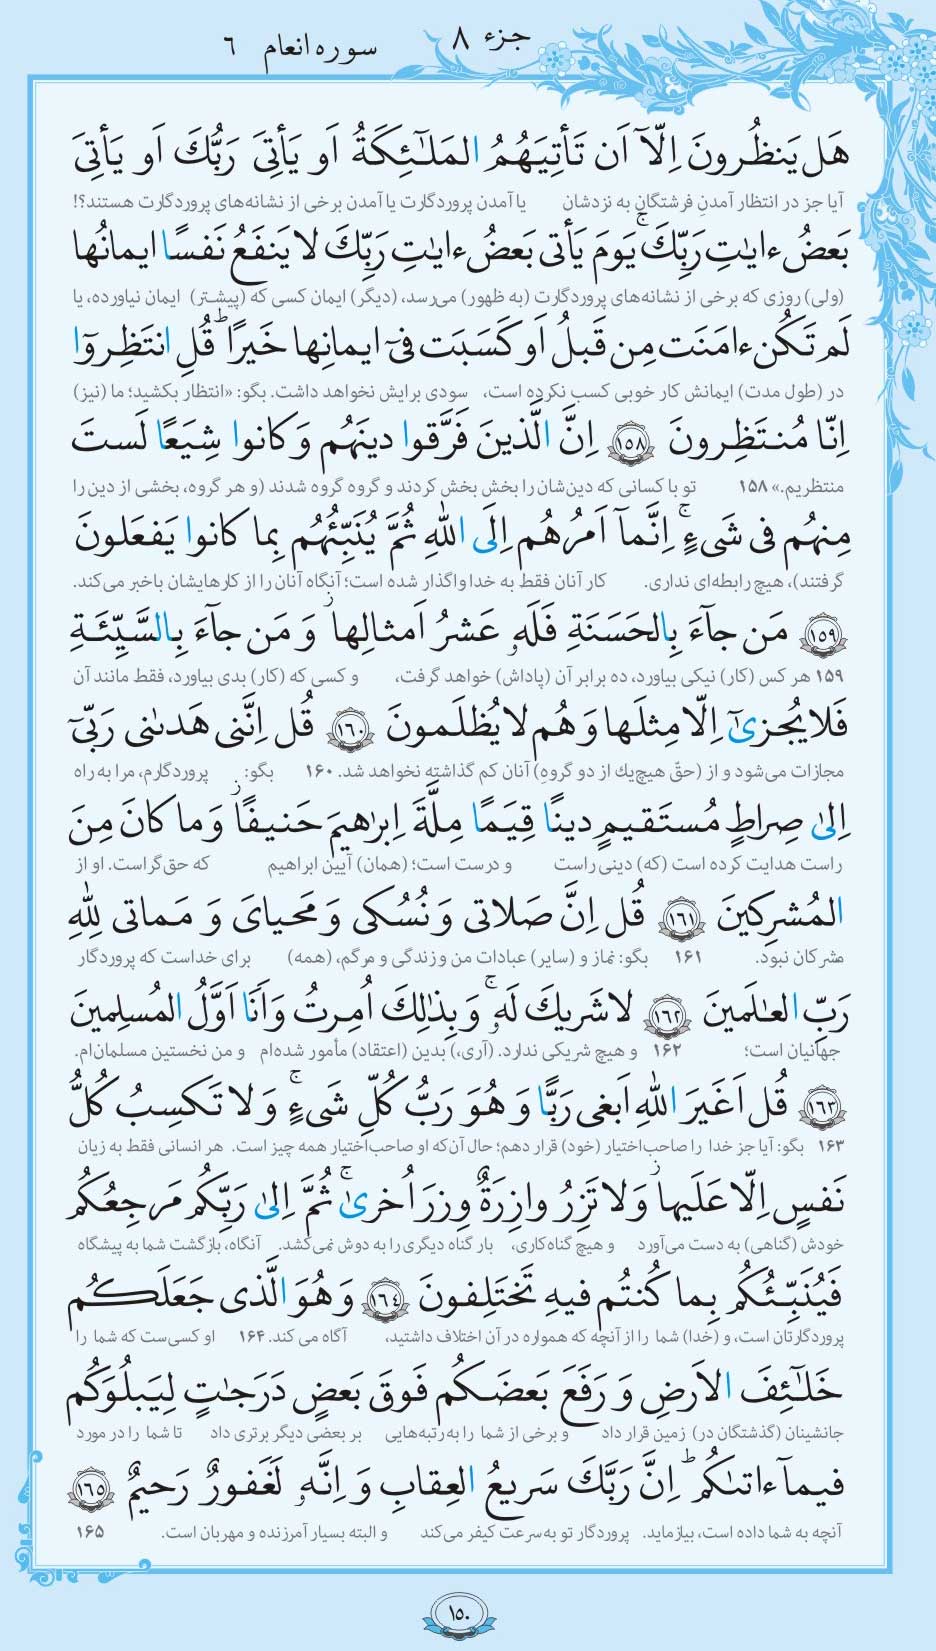 جزء ۸
سوره انعام ۶
هَل يَنظُرونَ اِلّآ اَن تَأتيَهُمُ المَلـٰٓئِكَةُ اَو يَأتِىَ رَبُّكَ اَو يَأتِىَ
آیا جز در انتظار آمدنِ فرشتگان به نزدشان یا آمدن پروردگارت یا آمدن برخی از نشانه‌های پروردگارت هستند؟!
بَعضُ ءايـٰتِ رَبِّكَۗ يَومَ يَأتى بَعضُ ءايـٰتِ رَبِّكَ لا يَنفَعُ نَفسًا ايمانُها
(ولی) روزی که برخی از نشانه‌های پروردگارت (به ظهور) می‌رسد، (دیگر) ایمان کسی که (پیشتر) ایمان نیاورده، یا
لَم تَكُن ءامَنَت مِن قَبلُ اَو كَسَبَت فىٓ ايمانِها خَيرًاؕ قُلِ انتَظِروٓا
در (طول مدت) ایمانش کار خوبی کسب نکرده است، سودی برایش نخواهد داشت. بگو: «انتظار بکشید؛ ما (نیز)
اِنّا مُنتَظِرونَ ۝۱۵۸ اِنَّ الَّذينَ فَرَّقوا دينَهُم وَ كانوا شِيَعًا لَستَ
منتظریم.» ۱۵۸ تو با کسانی که دین‌شان را بخش بخش کردند و گروه گروه شدند (و هر گروه، بخشی از دین را
مِنهُم فى شَىءٍۚ اِنَّمآ اَمرُهُم اِلَى اللّٰهِ ثُمَّ يُنَبِّئُهُم بِما كانوا يَفعَلونَ
گرفتند)، هیچ رابطه‌ای نداری. کار آنان فقط به خدا واگذار شده است؛ آنگاه آنان را از کارهایشان باخبر می‌کند.
۝۱۵۹ مَن جآءَ بِالحَسَنَةِ فَلَهٗ عَشرُ اَمثالِهاۖ وَ مَن جآءَ بِالسَّيِّئَةِ
۱۵۹ هر کس (کار) نیکی بیاورد، ده برابر آن (پاداش) خواهد گرفت، و کسی که (کار) بدی بیاورد، فقط مانند آن
فَلا يُجزىٰٓ اِلّا مِثلَها وَ هُم لا يُظلَمونَ ۝۱۶۰ قُل اِنَّنى هَدىٰنى رَبّىٓ
مجازات می‌شود و از (حقّ هیچ‌یک از دو گروهِ) آنان کم گذاشته نخواهد شد. ۱۶۰ بگو: پروردگارم، مرا به راه
اِلىٰ صِراطٍ مُستَقيمٍ دينًا قِيَمًا مِلَّةَ اِبرٰهيمَ حَنيفًاۚ وَ ما كانَ مِنَ
راست هدایت کرده است (که) دینی راست و درست است؛ (همان) آیین ابراهیم که حق‌گراست. او از
المُشرِكينَ ۝۱۶۱ قُل اِنَّ صَلاتى وَ نُسُكى وَ مَحياىَ وَ مَماتى لِلّٰهِ
مشرکان نبود. ۱۶۱ بگو: نماز و (سایر) عبادات من و زندگی و مرگم، (همه) برای خداست که پروردگار
رَبِّ العـٰلَمينَ ۝۱۶۲ لا شَريكَ لَهٗۚ وَ بِذٰلِكَ اُمِرتُ وَ اَنَا اَوَّلُ المُسلِمينَ
جهانیان است؛ ۱۶۲ و هیچ شریکی ندارد. (آری،) بدین (اعتقاد) مأمور شده‌ام و من نخستین مسلمان‌ام.
۝۱۶۳ قُل اَغَيرَ اللّٰهِ اَبغى رَبًّا وَ هُوَ رَبُّ كُلِّ شَىءٍۚ وَ لا تَكسِبُ كُلُّ
۱۶۳ بگو: آیا جز خدا را صاحب‌اختیار (خود) قرار دهم؛ حال آن‌که او صاحب‌اختیار همه چیز است. هر انسانی فقط به زیان
نَفسٍ اِلّا عَلَيهاۚ وَ لا تَزِرُ وازِرَةٌ وِزرَ اُخرىٰۚ ثُمَّ اِلىٰ رَبِّكُم مَرجِعُكُم
خودش (گناهی) به دست می‌آورد و هیچ گناه‌کاری، بار گناه دیگری را به دوش نمی‌کشد. آنگاه، بازگشت شما به پیشگاه
فَيُنَبِّئُكُم بِما كُنتُم فيهِ تَختَلِفونَ ۝۱۶۴ وَ هُوَ الَّذى جَعَلَكُم
پروردگارتان است، و (خدا) شما را از آنچه که همواره در آن اختلاف داشتید، آگاه می کند. ۱۶۴ او کسی‌ست که شما را
خَلـٰٓئِفَ الاَرضِ وَ رَفَعَ بَعضَكُم فَوقَ بَعضٍ دَرَجـٰتٍ لِيَبلُوَكُم
جانشینان (گذشتگان در) زمین قرار داد و برخی از شما را به رتبه‌هایی بر بعضی دیگر برتری داد تا شما را در مورد
فيمآ ءاتىٰكُمؕ اِنَّ رَبَّكَ سَريعُ العِقابِ وَ اِنَّهٗ لَغَفورٌ رَحيمٌ ۝۱۶۵
آنچه به شما داده است، بیازماید. پروردگار تو به‌سرعت کیفر می‌کند و البته بسیار آمرزنده و مهربان است. ۱۶۵
۱۵۰